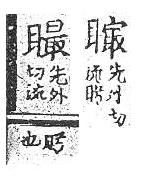 先外切
流眄
先外
切流
眄
也